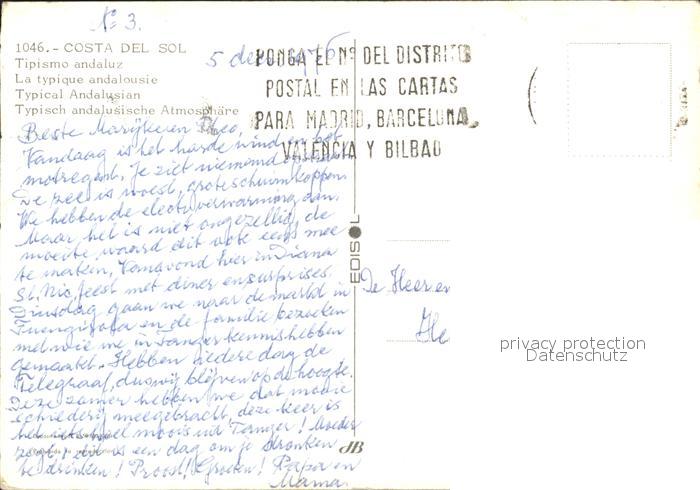 N= 3.
1046.- COSTA DEL SOL
Tipismo andaluz
La typique andalousie
Typical Andalusian
Typisch andalusische Atmosphäre
5 dec. 1976
PONGA EL Nº DEL DISTRITO
POSTAL EN LAS CARTAS
PARA MADRID, BARCELONA,
VALENCIA Y BILBAO
Beste Marijke en Theo,
Vandaag is het harde wind en het
motregent. Je ziet niemand
De zee is woest, grote schuimkoppen.
We hebben de electr. verwarming aan.
Maar het is niet ongezellig, de
moeite waard dit ook eens mee
te maken, Vanavond hier in Diana
St. Nic. feest met diner en surprises.
Dinsdag gaan we naar de markt in
Fuengirola en de familie bezoeken
met wie we in Tanger kennis hebben
gemaakt. Hebben iedere dag de
Telegraaf, dus wij blijven op de hoogte.
Deze zomer hebben we dat mooie
schilderij meegebracht, deze keer is
het iets heel moois uit Tanger! Moeder
zegt, dit is een dag om je dronken
te drinken! Proost! Groeten! Papa en
Mama.
EDISOL
De Heer en
He
JB
privacy protection
Datenschutz